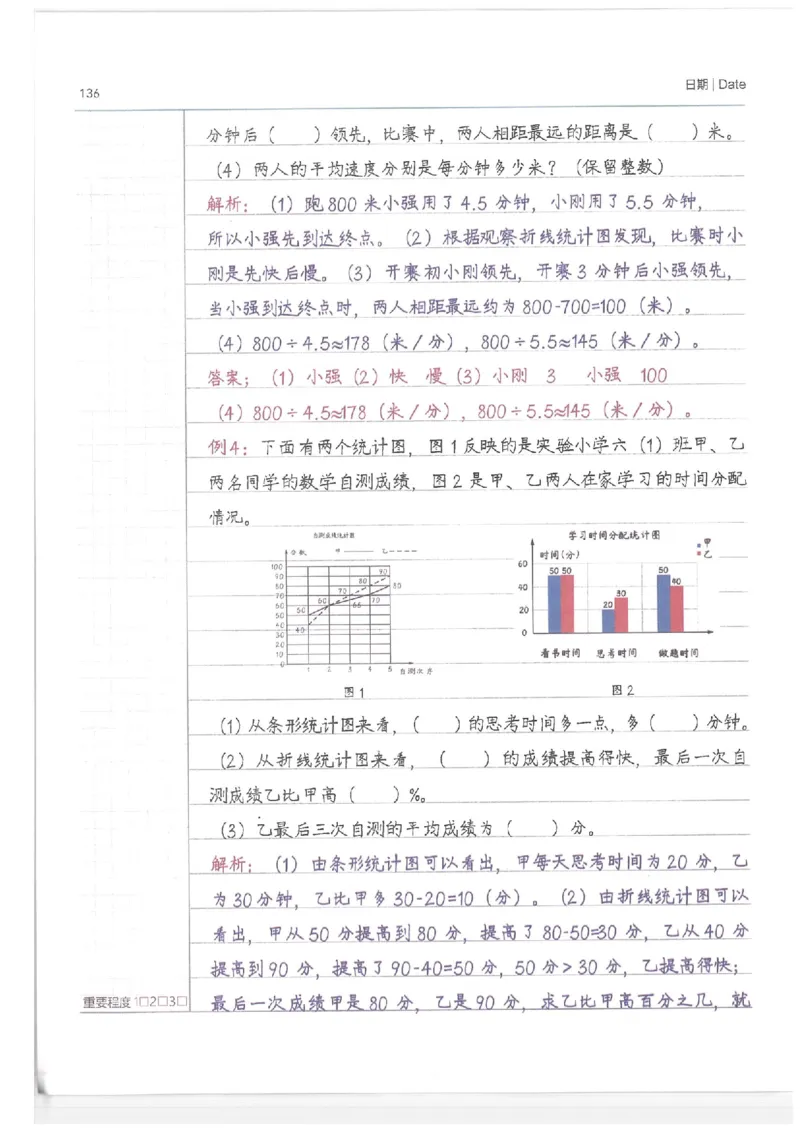 136
日期 | Date
分钟后（ ）领先，比赛中，两人相距最远的距离是（ ）米。
（4）两人的平均速度分别是每分钟多少米？（保留整数）
解析：（1）跑800米小强用了4.5分钟，小刚用了5.5分钟，
所以小强先到达终点。（2）根据观察折线统计图发现，比赛时小
刚是先快后慢。（3）开赛初小刚领先，开赛3分钟后小强领先，
当小强到达终点时，两人相距最远约为800-700=100（米）。
（4）800÷4.5≈178（米/分），800÷5.5≈145（米/分）。
答案：（1）小强（2）快 慢（3）小刚 3 小强 100
（4）800÷4.5≈178（米/分），800÷5.5≈145（米/分）。
例4：下面有两个统计图，图1反映的是实验小学六（1）班甲、乙
两名同学的数学自测成绩，图2是甲、乙两人在家学习的时间分配
情况。
自测成绩统计图
分数 甲 —— 乙 ----
100
90
80
70
60
50
40
30
20
10
0
50
40
60
70
66
80
70
90
80
1 2 3 4 5 自测次序
图1
学习时间分配统计图
甲
乙
时间（分）
60
40
20
0
50 50
20 30
50 40
看书时间 思考时间 做题时间
图2
（1）从条形统计图来看，（ ）的思考时间多一点，多（ ）分钟。
（2）从折线统计图来看，（ ）的成绩提高得快，最后一次自
测成绩乙比甲高（ ）%。
（3）乙最后三次自测的平均成绩为（ ）分。
解析：（1）由条形统计图可以看出，甲每天思考时间为20分，乙
为30分钟，乙比甲多30-20=10（分）。（2）由折线统计图可以
看出，甲从50分提高到80分，提高了80-50=30分，乙从40分
提高到90分，提高了90-40=50分，50分>30分，乙提高得快；
最后一次成绩甲是80分，乙是90分，求乙比甲高百分之几，就
重要程度 1□2□3□